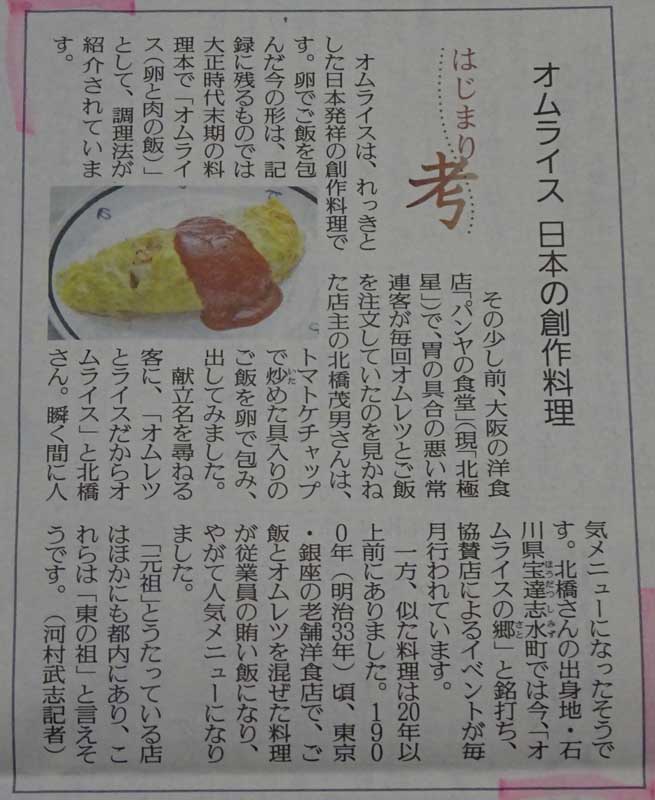 オムライス 日本の創作料理
はじまり考
オムライスは、れっきと
した日本発祥の創作料理で
す。卵でご飯を包
んだ今の形は、記
録に残るものでは
大正時代末期の料
理本で「オムライ
ス（卵と肉の飯）」
として、調理法が
紹介されていま
す。
その少し前、大阪の洋食
店「パンヤの食堂」（現「北極
星」）で、胃の具合の悪い常
連客が毎回オムレツとご飯
を注文していたのを見かね
た店主の北橋茂男さんは、
トマトケチャップ
で炒めた具入りの
いた
ご飯を卵で包み、
出してみました。
献立名を尋ねる
客に、「オムレツ
とライスだからオ
ムライス」と北橋
さん。瞬く間に人
気メニューになったそうで
す。北橋さんの出身地・石
川県宝達志水町では今、「オ
ほうだつしみず
ムライスの郷」と銘打ち、
さと
協賛店によるイベントが毎
月行われています。
一方、似た料理は20年以
上前にありました。190
0年（明治33年）頃、東京
・銀座の老舗洋食店で、ご
飯とオムレツを混ぜた料理
が従業員の賄い飯になり、
やがて人気メニューになり
ました。
「元祖」とうたっている店
はほかにも都内にあり、こ
れらは「東の祖」と言えそ
うです。（河村武志記者）